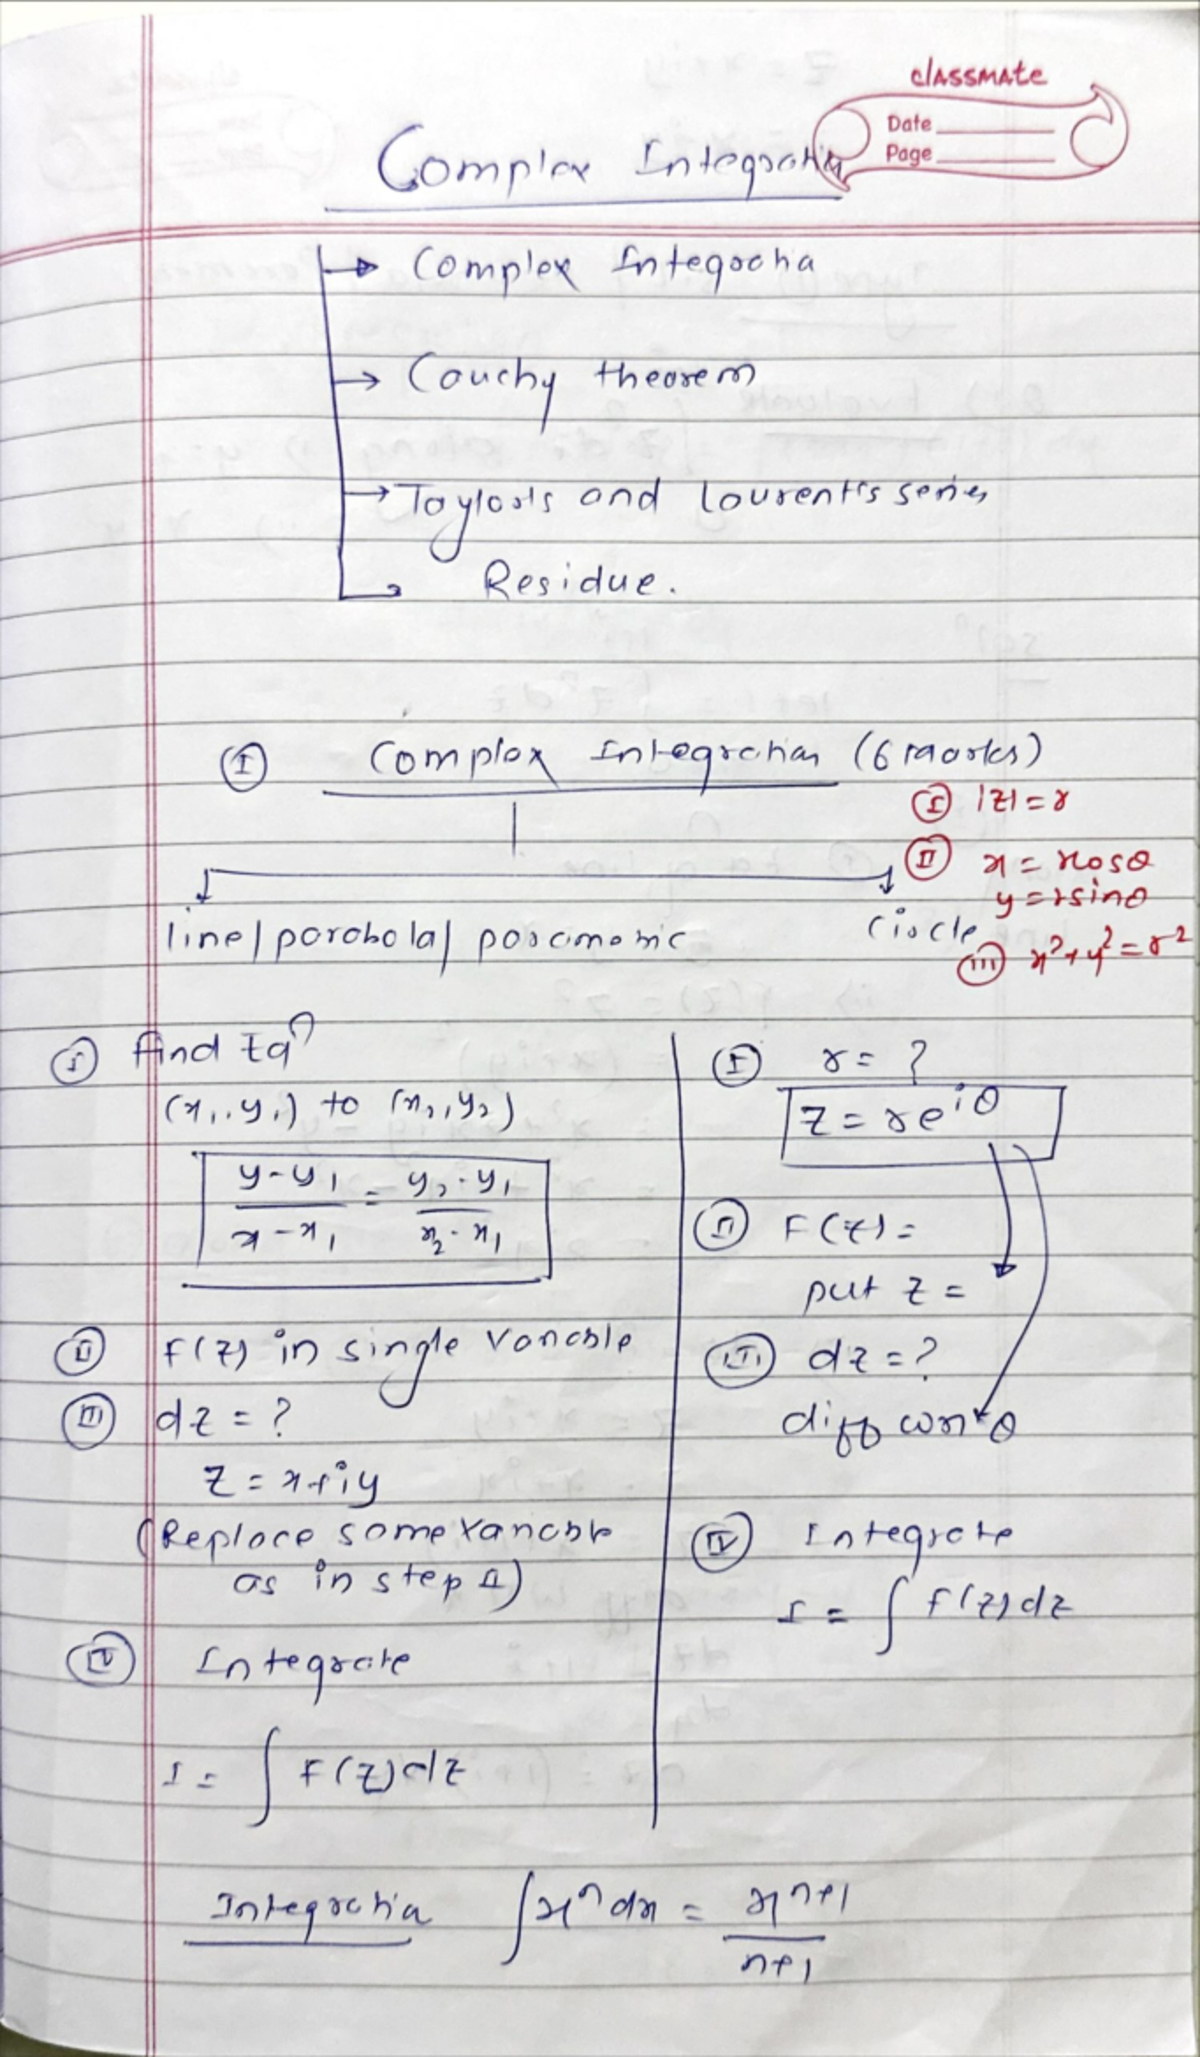 classmate
Date
Page
Complex Integration
→ Complex Integration
→ Cauchy theorem
→ Taylor's and Laurent's series
→ Residue.
(I) Complex Integration (6 marks)
(I) |z| = r
(II) x = rcosθ
y = rsinθ
line/parabola/parametric
Circle
(III) x²+y² = r²
(I) find Eqn
(x₁, y₁) to (x₂, y₂)
(y-y₁)/(x-x₁) = (y₂-y₁)/(x₂-x₁)
(II) F(z) in single variable
(III) dz = ?
z = x+iy
(Replace same variable
as in step 1)
(IV) Integrate
I = ∫ F(z)dz
(I) r = ?
z = re^{iθ}
(II) F(z) =
put z =
(III) dz = ?
diff w.r.t θ
(IV) Integrate
I = ∫ F(z)dz
Integration ∫xⁿ dx = x^{n+1}/(n+1)